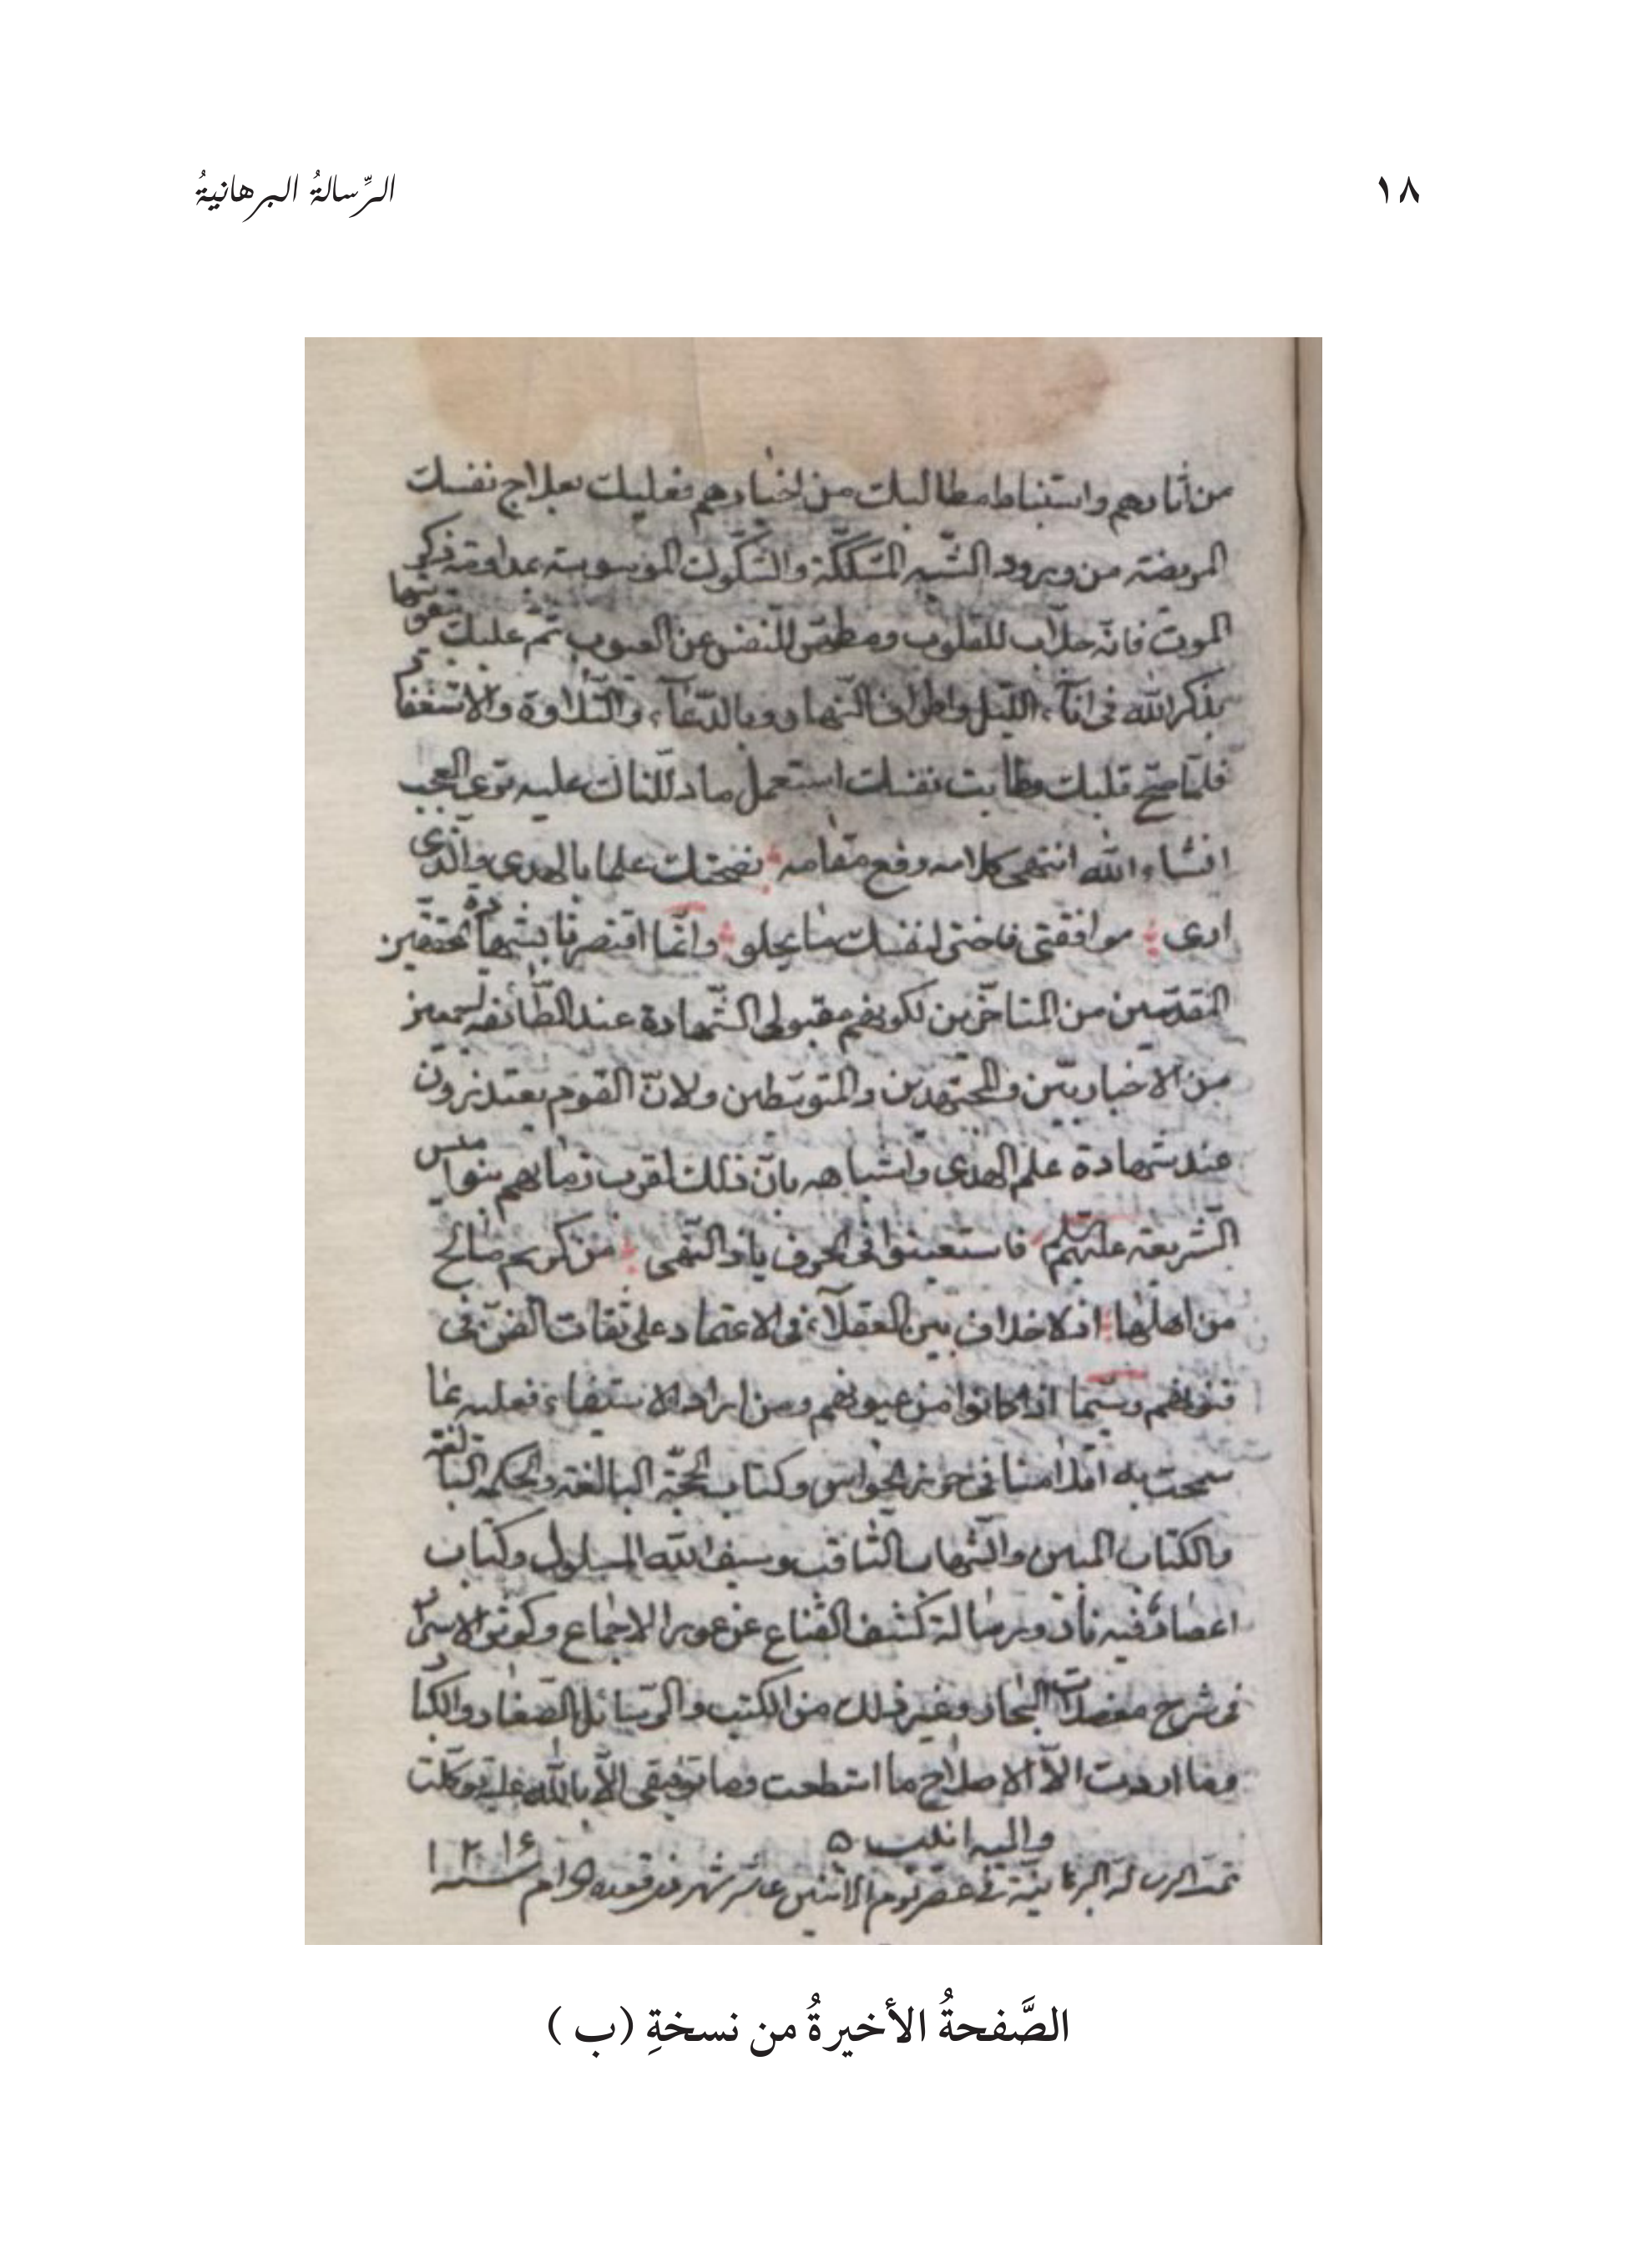 ١٨
الرِّسالةُ البرهانيةُ
من اثارهم واستنباط مطالبك من اخبارهم فعليك بعلاج نفسك
المريضة من ورود الشبه المشككة والشكوك الموسوسة بمداومة ذكر
الموت فانه جلاب للقلوب ومطهر للنفس عن العيوب ثم عليك بتقويتها
بذكر الله فى اناء الليل واطراف النهار وبالدعاء والتلاوة والاستغفار
فلما صح قلبك وطابت نفسك استعمل ما دللناك عليه ترى العجب
انشاء الله انتهى كلامه رفع مقامه نصحتك علما بالهدى والذى
ارى موافقتى فاختر لنفسك ما يحلو وانما اقتصرنا بشهادة محققين
المقدمين من المتاخرين لكونهم مقبولى الشهادة عند الطائفة
من الاخباريين والمجتهدين والمتوسطين ولان القوم يعتذرون
عند شهادة علم الهدى واشباهه بان ذلك لقرب زمانهم
الشريعة عليهم السلم فاستعينوا فى الحرف ياذا النهى من كريم صالح
من اهلها اذ لا خلاف بين العقلاء فى الاعتماد على ثقات الفن فى
فنونهم وسيما اذا كانوا من عيونهم ومن اراد الاستيفاء فعليه بما
سمحت به اقلامنا فى حرز الحواس وكتاب الحجة البالغة والحكمة البالغة
والكتاب المبين والشهاب الثاقب وسيف الله المسلول وكتاب
اعصار فيه نار ورسالة كشف القناع عن عور الاجماع وكوثر الاسرار
فى شرح معضلات البحار وغير ذلك من الكتب والرسائل الصغار والكبار
وما اردت الا الاصلاح ما استطعت وما توفيقى الا بالله عليه توكلت
واليه انيب
تمت الرسالة البرهانية فى عصر يوم الاثنين عاشر شهر ذيقعده الحرام سنه
الصَّفحةُ الأخيرةُ من نسخةِ (ب)